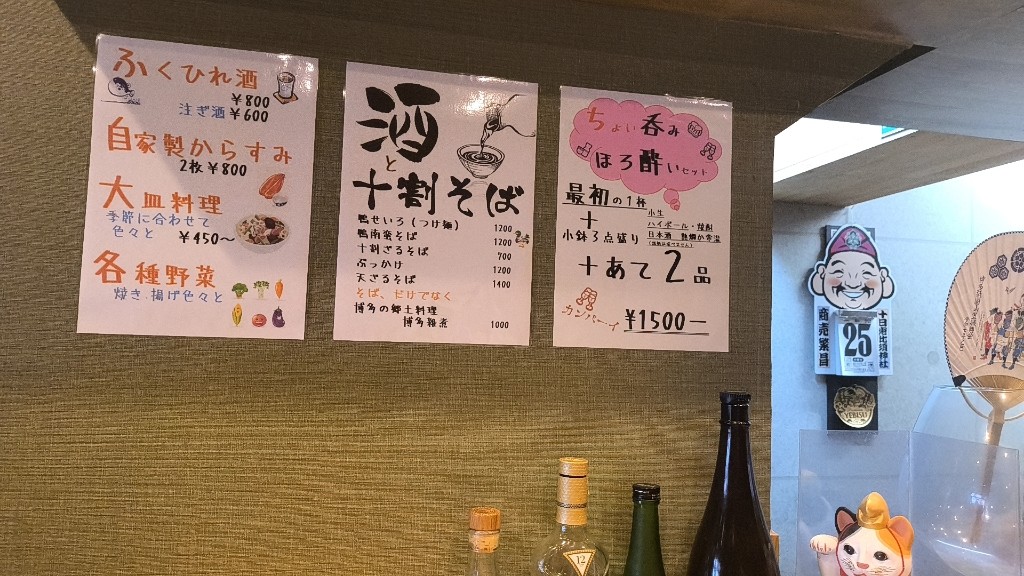 ふくひれ酒
¥800
注ぎ酒 ¥600
自家製からすみ
2枚 ¥800
大皿料理
季節に合わせて
色々と ¥450〜
各種野菜
焼き 揚げ色々と
酒
と
十割そば
鴨せいろ(つけ麺) 1200
鴨南蛮そば 1200
十割ざるそば 700
ぶっかけ 1200
天ざるそば 1400
そば、だけでなく
博多の郷土料理
博多雑煮 1000
ちょい呑み
ほろ酔いセット
最初の1杯
小生
ハイボール・焼酎
日本酒 熱燗か常温
+
小鉢3点盛り
+あて2品
カンパーイ
¥1500−
商売繁昌
十日恵比須神社
25
YEBISU
12